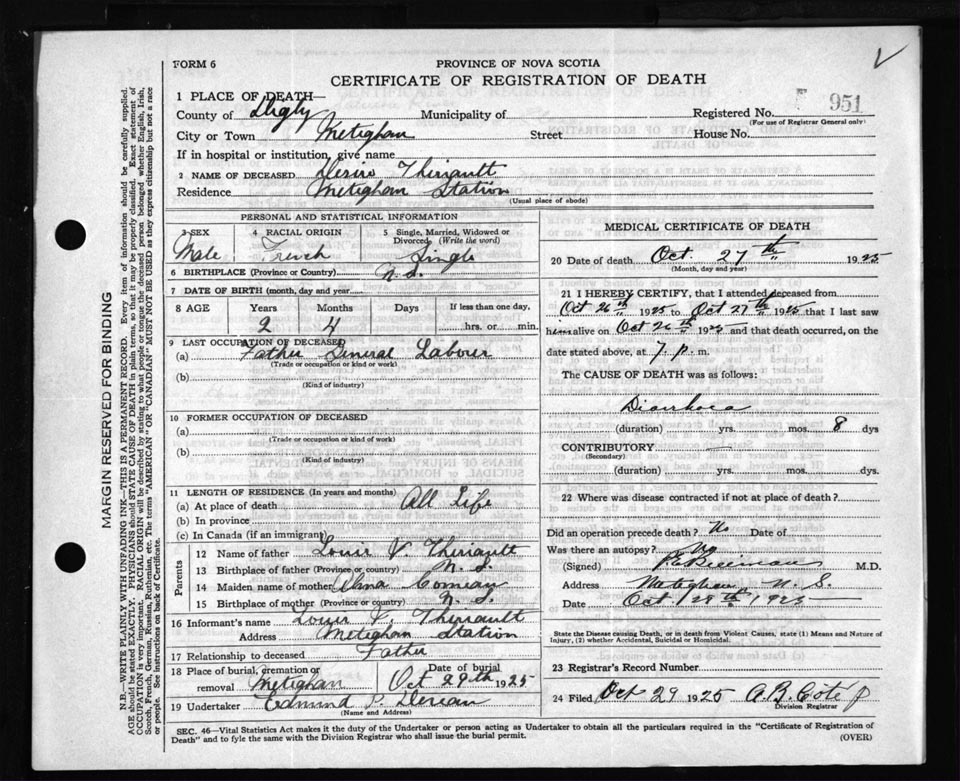 FORM 6
PROVINCE OF NOVA SCOTIA
CERTIFICATE OF REGISTRATION OF DEATH
1 PLACE OF DEATH—
County of Digby Municipality of Registered No. 951
(For use of Registrar General only)
City or Town Metighan Street House No.
If in hospital or institution, give name
2 NAME OF DECEASED Thériault
Residence Metighan Station
(Usual place of abode)
PERSONAL AND STATISTICAL INFORMATION
3 SEX 4 RACIAL ORIGIN 5 Single, Married, Widowed or Divorced (Write the word)
Male French Single
6 BIRTHPLACE (Province or Country) N.S.
7 DATE OF BIRTH (month, day and year)
8 AGE Years Months Days If less than one day,
2 4 hrs. or min.
9 LAST OCCUPATION OF DECEASED
(a) Father General Labourer
(Trade or occupation or kind of work)
(b)
(Kind of industry)
10 FORMER OCCUPATION OF DECEASED
(a)
(Trade or occupation or kind of work)
(b)
(Kind of industry)
11 LENGTH OF RESIDENCE (In years and months)
(a) At place of death All Life
(b) In province
(c) In Canada (if an immigrant)
Parents
12 Name of father Louis V. Theriault
13 Birthplace of father (Province or country) N.S.
14 Maiden name of mother Alma Comeau
15 Birthplace of mother (Province or country) N.S.
16 Informant's name Louis V. Theriault
Address Metighan Station
17 Relationship to deceased Father
18 Place of burial, cremation or removal Metighan Date of burial Oct 29th 1925
19 Undertaker Edmund P.
(Name and Address)
MEDICAL CERTIFICATE OF DEATH
20 Date of death Oct. 27th 1925
(Month, day and year)
21 I HEREBY CERTIFY, that I attended deceased from
Oct 26th 1925 to Oct 27th 1925 that I last saw
him alive on Oct 26th 1925 and that death occurred, on the
date stated above, at 7. p. m.
The CAUSE OF DEATH was as follows:
Diarrhoea
(duration) yrs. mos. 8 dys
CONTRIBUTORY —
(Secondary)
(duration) yrs. mos. dys.
22 Where was disease contracted if not at place of death?
Did an operation precede death? No Date of
Was there an autopsy? No
(Signed) M.D.
Address Metighan N. S.
Date Oct 28th 1925
State the Disease causing Death, or in death from Violent Causes, state (1) Means and Nature of Injury, (2) whether Accidental, Suicidal or Homicidal.
23 Registrar's Record Number
24 Filed Oct 29 1925 A.B. Coté
Division Registrar
SEC. 46—Vital Statistics Act makes it the duty of the Undertaker or person acting as Undertaker to obtain all the particulars required in the "Certificate of Registration of
Death" and to fyle the same with the Division Registrar who shall issue the burial permit. (OVER)
MARGIN RESERVED FOR BINDING
N.B.—WRITE PLAINLY WITH UNFADING INK—THIS IS A PERMANENT RECORD. Every item of information should be carefully supplied.
AGE should be stated EXACTLY. PHYSICIANS should STATE CAUSE OF DEATH in plain terms, so that it may be properly classified. Exact statement of
OCCUPATION is very important. RACIAL ORIGIN will be described by stating to what people or tongue the deceased person belonged whether English, Irish,
Scotch, French, German, Russian, Ruthenian, etc. The terms "AMERICAN" or "CANADIAN" MUST NOT BE USED as they express citizenship but not a race
or people. See instructions on back of Certificate.